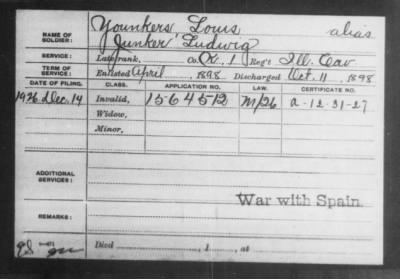 NAME OF SOLDIER: Younkers Louis alias
Junker Ludwig
SERVICE: Late rank, Co. K, 1 Reg't Ill. Cav
TERM OF SERVICE: Enlisted April, 1898 Discharged Oct. 11, 1898
DATE OF FILING. CLASS. APPLICATION NO. LAW. CERTIFICATE NO.
1926 Dec. 14 Invalid, 1564512 M/26 a-12-31-27
Widow,
Minor,
ADDITIONAL SERVICES:
War with Spain
REMARKS:
Died, 1, at